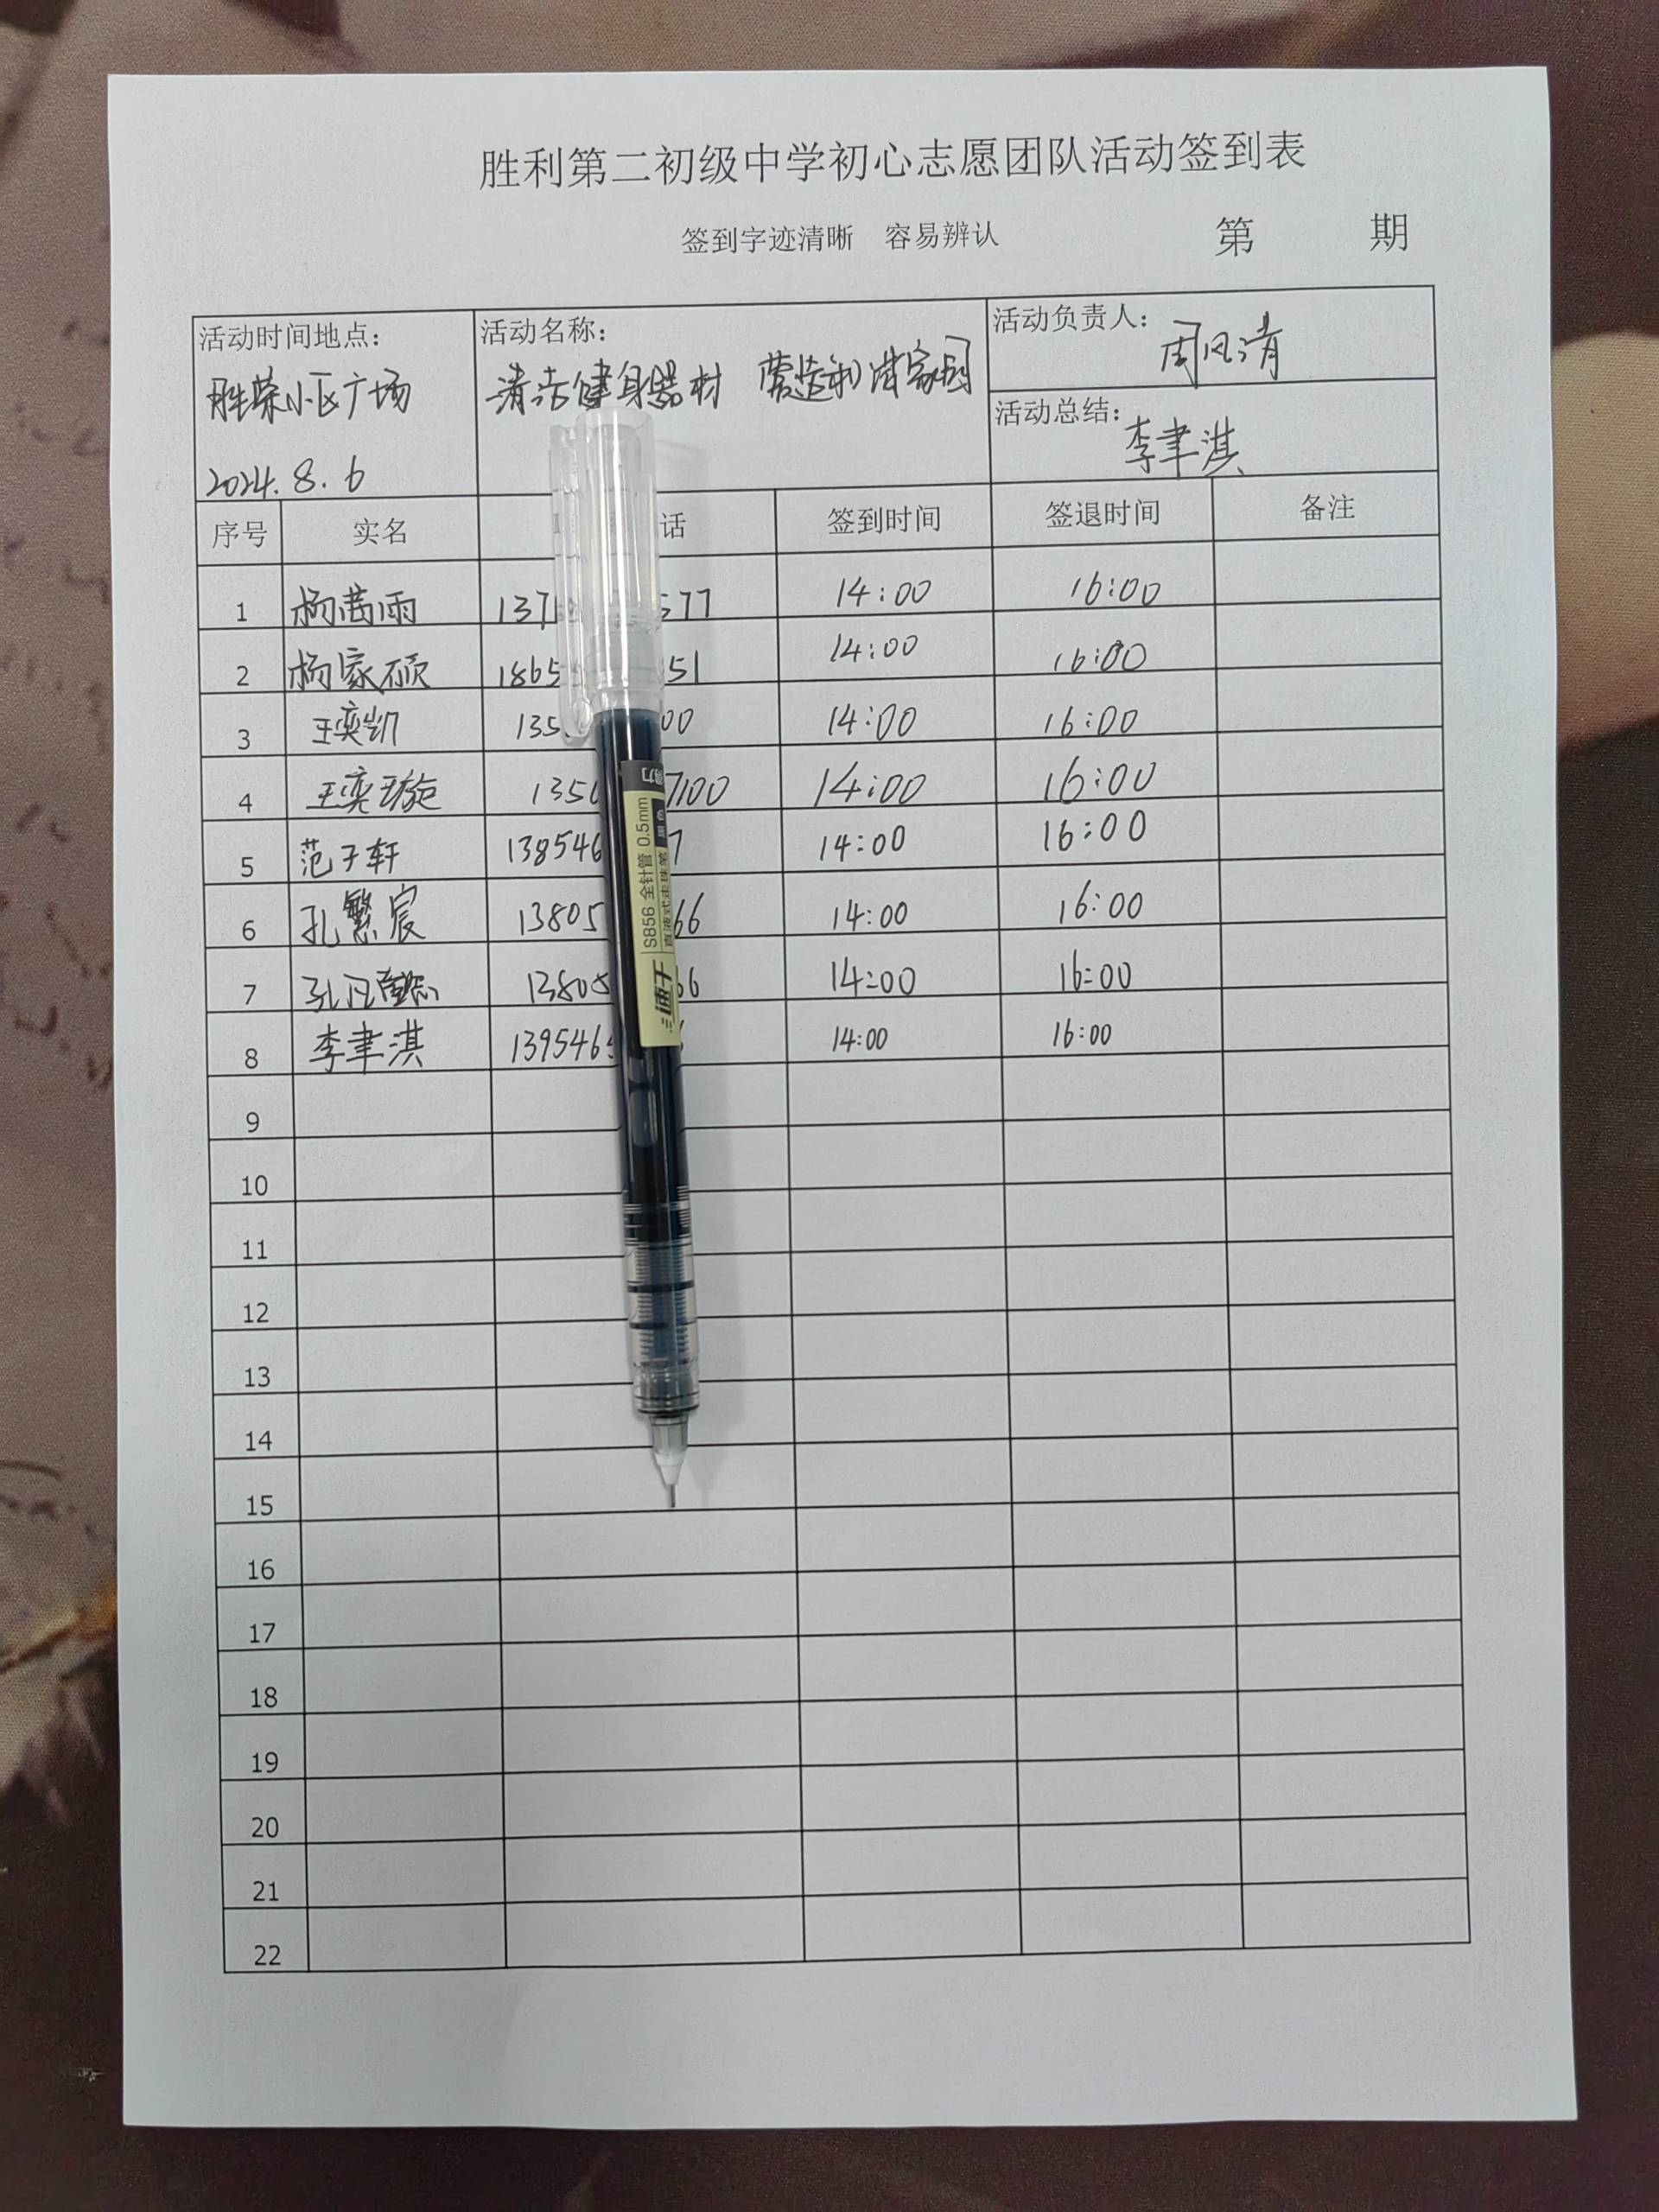 胜利第二初级中学初心志愿团队活动签到表
签到字迹清晰 容易辨认 第 期
活动时间地点: 活动名称: 活动负责人: 周风清
胜荣小区广场 清洁健身器材 营造和谐家园
2024.8.6 活动总结: 李聿淇
序号 实名 话 签到时间 签退时间 备注
1 杨茜雨 137 577 14:00 16:00
2 杨家硕 1865 51 14:00 16:00
3 王奕凯 135 00 14:00 16:00
4 王奕璇 1350 7100 14:00 16:00
5 范子轩 138546 7 14:00 16:00
6 孔繁宸 13805 66 14:00 16:00
7 孔 13805 66 14:00 16:00
8 李聿淇 139546 14:00 16:00
9
10
11
12
13
14
15
16
17
18
19
20
21
22
得力
S856 全针管 0.5mm 黑色
直液式走珠笔
速干